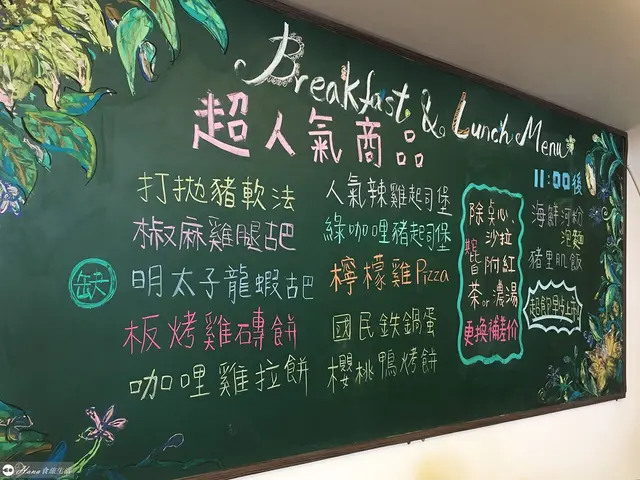 Breakfast & Lunch Menu
超人氣商品
打拋豬軟法
椒麻雞腿古巴
缺
明太子龍蝦古巴
板烤雞磚餅
咖哩雞拉餅
人氣辣雞起司堡
綠咖哩豬起司堡
檸檬雞Pizza
國民鉄鍋蛋
櫻桃鴨烤餅
除点心、
沙拉
附紅
茶or濃湯
更換補差价
11:00後
海鮮河粉
泡麵
豬里肌飯
Hana食旅生活